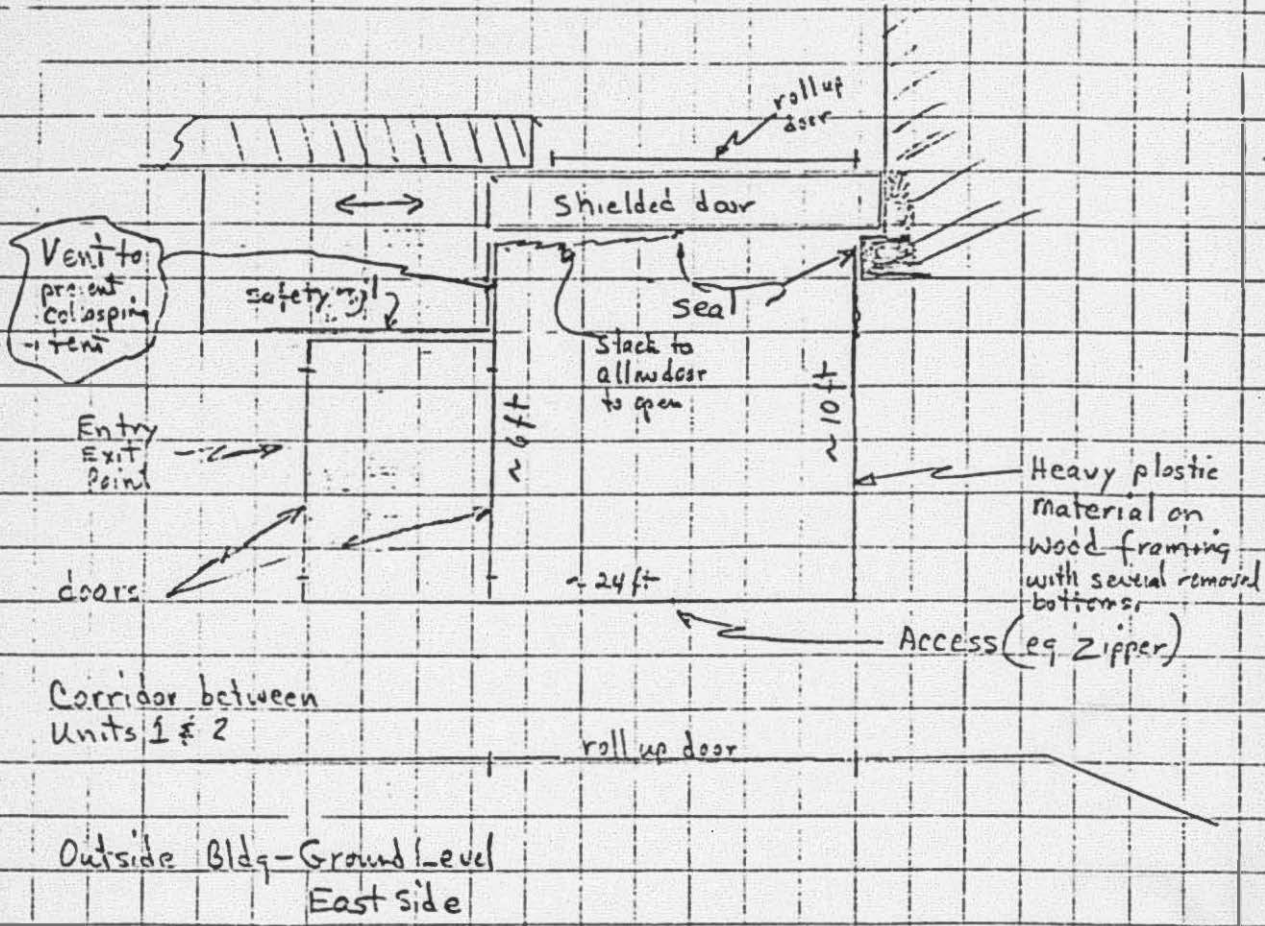 roll up
door
Shielded door
Vent to
prevent
collasping
tent
safety rail
seal
Slack to
allow door
to open
~ 6 ft
~ 10 ft
Entry
Exit
Point
Heavy plastic
material on
wood framing
with several removal
bottoms.
doors
~ 24 ft
Access (eg Zipper)
Corridor between
Units 1 & 2
roll up door
Outside Bldg - Ground Level
East side